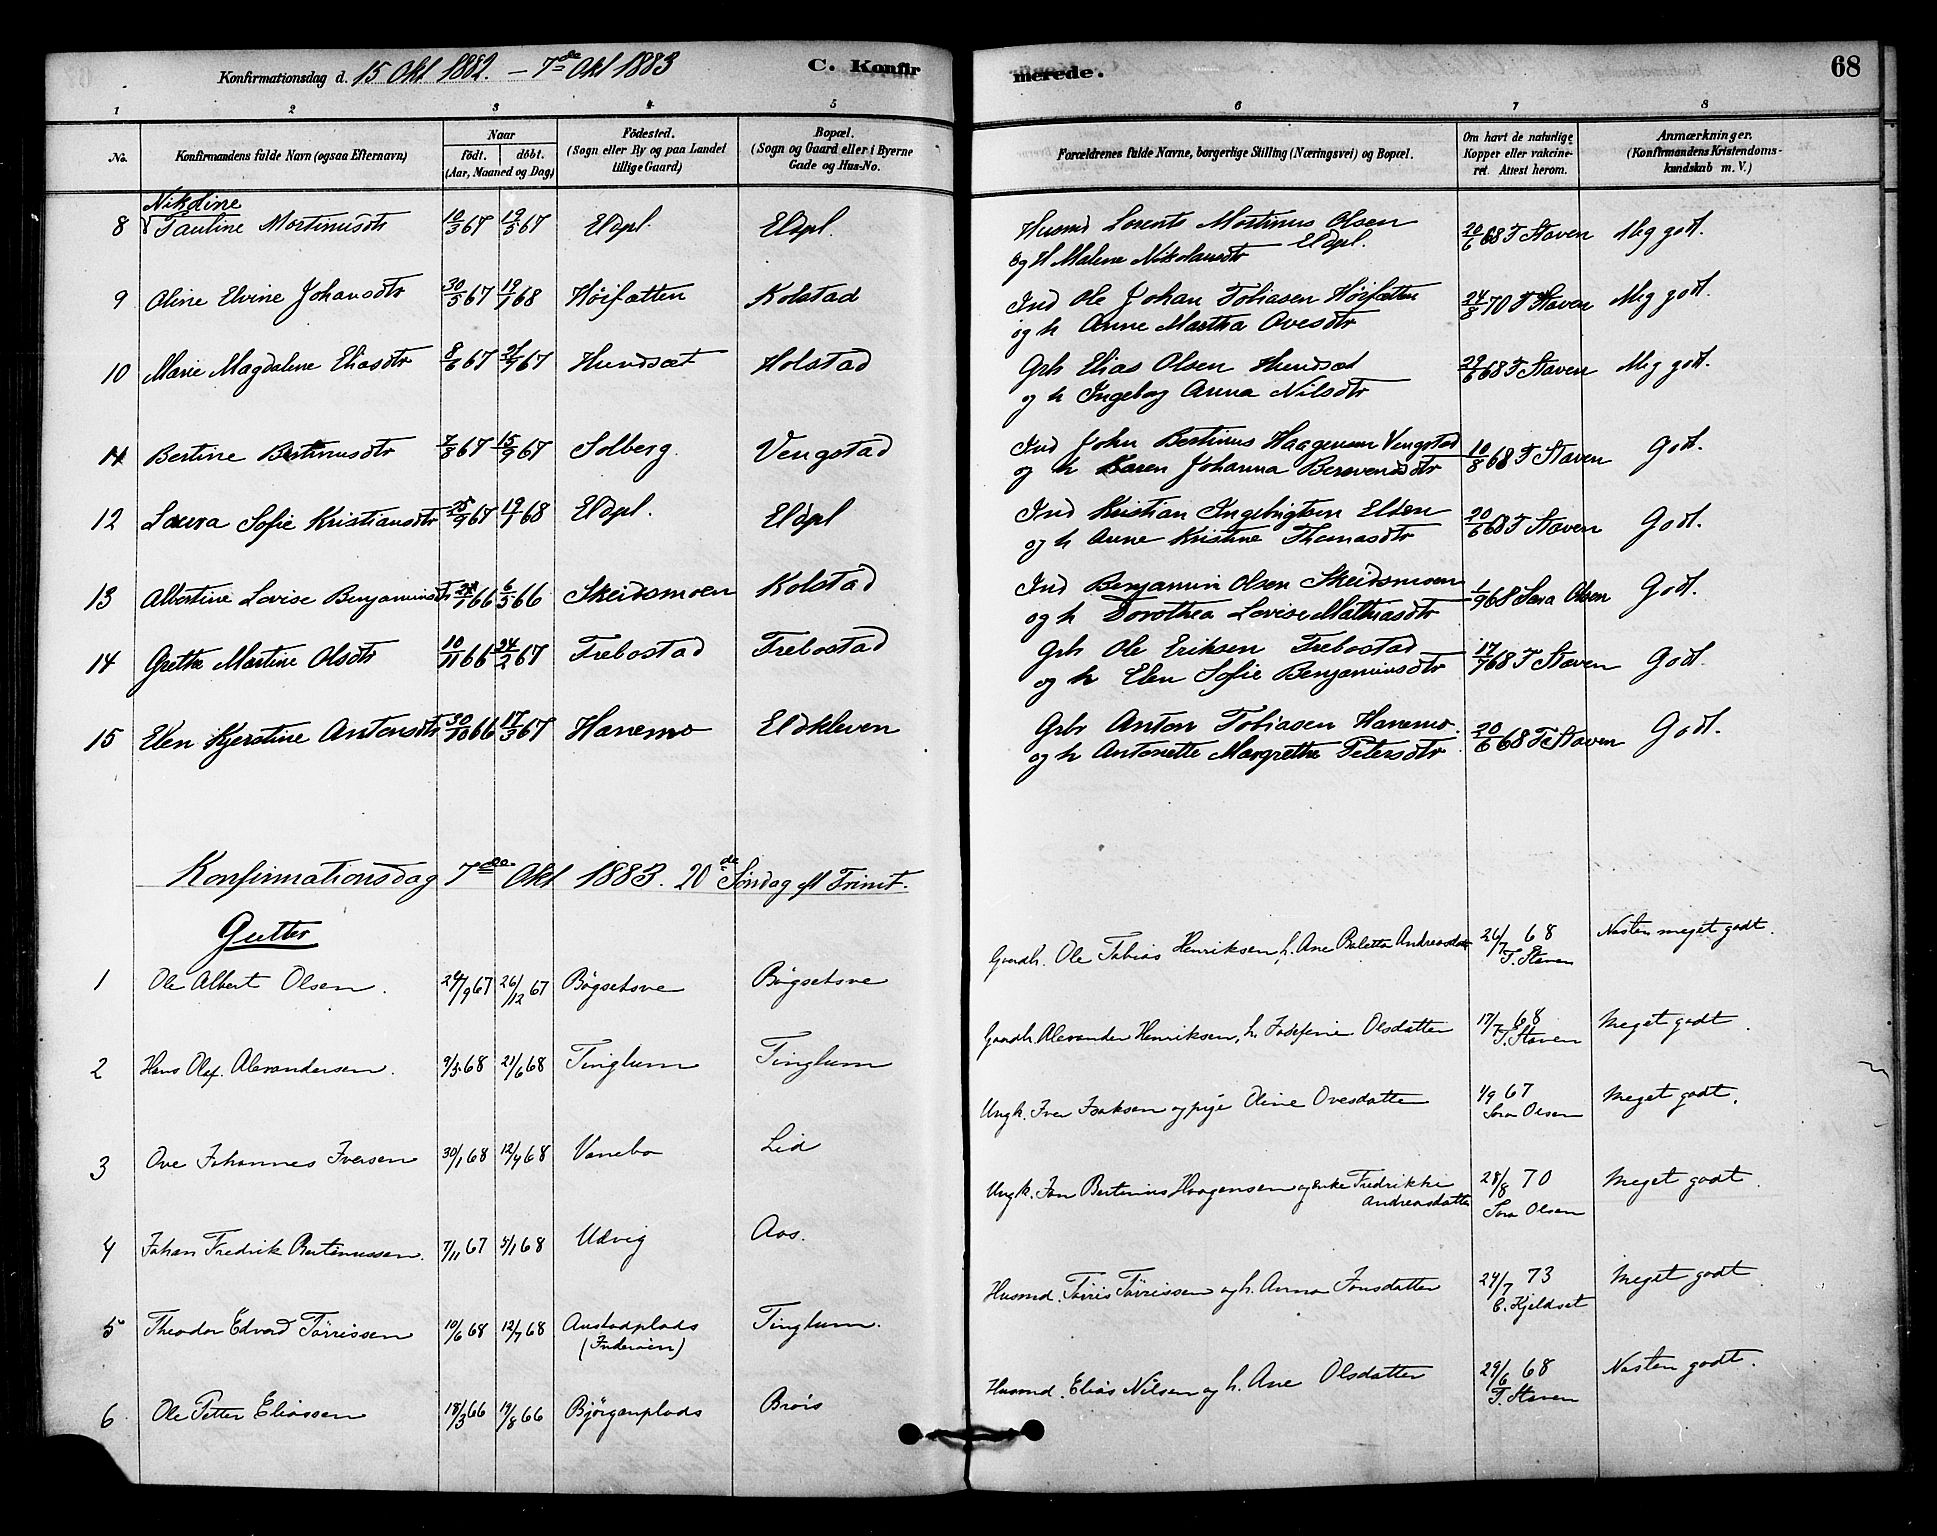 Konfirmationsdag d. 15 Okt 1882. – 7de Okt 1883 C. Konfirmerede. 68
1 2 3 4 5 6 7 8
No. Konfirmandens fulde Navn (ogsaa Efternavn) Naar födt. döbt. (Aar, Maaned og Dag) Födested. (Sogn eller By og paa Landet tillige Gaard) Bopæl. (Sogn og Gaard eller i Byerne Gade og Hus-No. Forældrenes fulde Navne, borgerlige Stilling (Næringsvei) og Bopæl. Om havt de naturlige Kopper eller vakcineret. Attest herom. Anmærkninger. (Konfirmandens Kristendomskundskab m. V.)
Nikoline
8 Pauline Martinusdtr 10/3 67 19/5 67 Eldpl. Eldpl. Husmd Lorents Martinus Olsen Eldpl. 20/6 68 T Staven Meg godt.
og H Malene Nikolausdtr
9 Oline Elvine Johansdtr 30/5 67 19/7 68 Høifætten Kolstad Ind Ole Johan Tobiasen Høifætten 24/8 70 T Staven Meg godt.
og h Anne Martha Ovesdtr
10 Marie Magdalene Eliasdtr 8/6 67 21/7 67 Hundsæt Holstad Grb Elias Olsen Hundsæt 29/6 68 T Staven Meg godt.
og h Ingeborg Anna Nilsdtr
11 Bertine Bertinusdtr 7/8 67 15/9 67 Solberg. Vengstad Ind John Bertinus Haagensen Vengstad 10/8 68 T Staven Godt.
og h Karen Johanna Berevendsdtr
12 Laura Sofie Kristiansdtr 25/9 67 19/7 68 Eldpl. Eldpl Ind Kristian Ingebrigtsen Elden 20/6 68 T Staven Godt.
og h Anne Kristine Thomasdtr
13 Albertine Lovise Benjaminsdtr 66 6/5 66 Skeidsmoen Kolstad Ind Benjamin Olsen Skeidsmoen 1/9 68 Sara Olsen Godt.
og h Dorothea Lovise Mathiasdtr
14 Grethe Martine Olsdtr 10/11 66 24/2 67 Trebostad Trebostad Grb Ole Eriksen Trebostad 17/7 68 T Staven Godt.
og h Elen Sofie Benjaminsdtr
15 Elen Kjerstine Antonsdtr 30/10 66 17/3 67 Hanemo Eldkleven Grb Anton Tobiasen Hanemo. 20/6 68 T Staven Godt.
og h Antonette Margrethe Petersdtr
Konfirmationsdag 7de Okt 1883. 20de Søndag eft Trinit.
Gutter
1 Ole Albert Olsen. 24/9 67 26/12 67 Bøgsetsve Bøgsetsve Gaardb. Ole Tobias Henriksen, h. Ane Beletta Andreasdatter 26/7 68 T. Staven Næsten meget godt.
2 Hans Olaf Alexandersen. 9/3 68 21/6 68 Tinglum Tinglum Gaardb. Alexander Henriksen, h. Josefine Olsdatter 17/7 68 T. Staven Meget godt.
3 Ove Johannes Iversen 30/1 68 12/4 68 Vanebo Lid Ungk. Iver Isaksen og pige Oline Ovesdatter 1/9 67 Sara Olsen Meget godt.
4 Johan Fredrik Bertinussen. 7/11 67 5/1 68 Udvig Aas. Ungk. Jon Bertinius Haagensen og enke Fredrikke Andreasdatter 28/8 70 Sara Olsen Meget godt.
5 Theodor Edvard Tørrissen 10/6 68 12/7 68 Austadplads (Inderøen) Tinglum. Husmd. Tørris Tørrissen og h. Anna Jonsdatter 24/7 73 C. Hjeldset Meget godt.
6 Ole Petter Eliassen 18/3 66 19/8 66 Bjørganplads Brøis Husmd. Elias Nilsen og h. Ane Olsdatter 29/6 68 T. Staven Næsten godt.